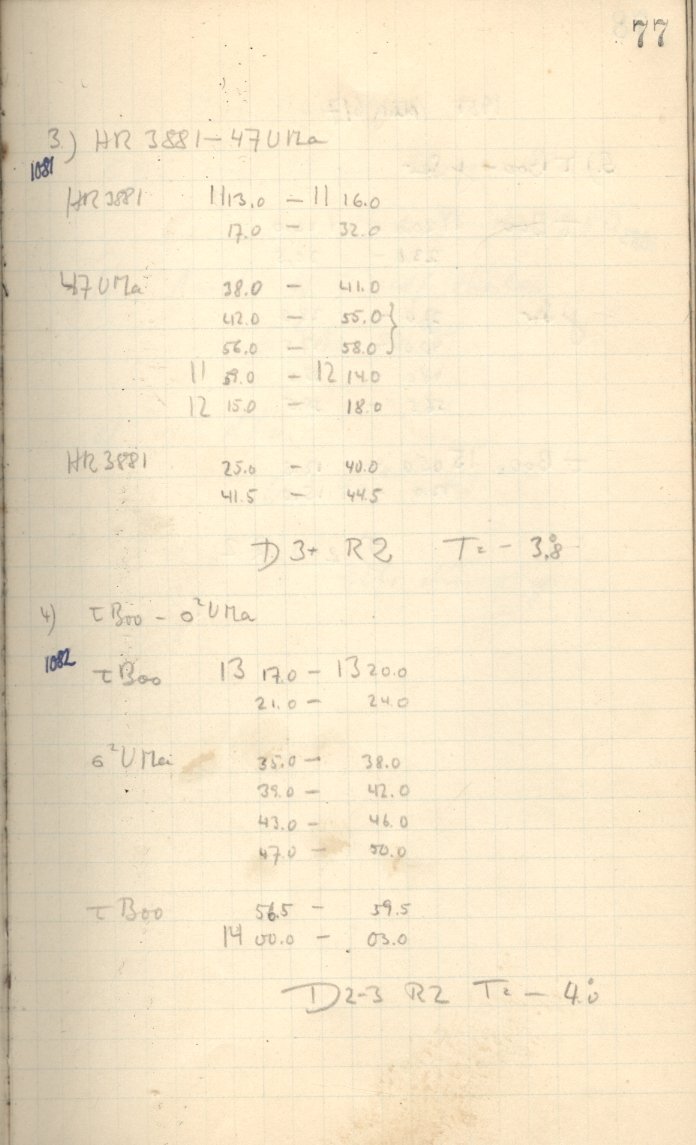 77
3.) HR 3881 – 47 UMa
1081
HR 3881 11 13.0 – 11 16.0
17.0 – 32.0
47 UMa 38.0 – 41.0
42.0 – 55.0 }
56.0 – 58.0 }
11 59.0 – 12 14.0
12 15.0 – 18.0
HR 3881 25.0 – 40.0
41.5 – 44.5
D 3+ R 2 T = – 3.°8
4) τ Boo – o² UMa
1082
τ Boo 13 17.0 – 13 20.0
21.0 – 24.0
o² UMa 35.0 – 38.0
39.0 – 42.0
43.0 – 46.0
47.0 – 50.0
τ Boo 56.5 – 59.5
14 00.0 – 03.0
D 2-3 R 2 T = – 4.°0